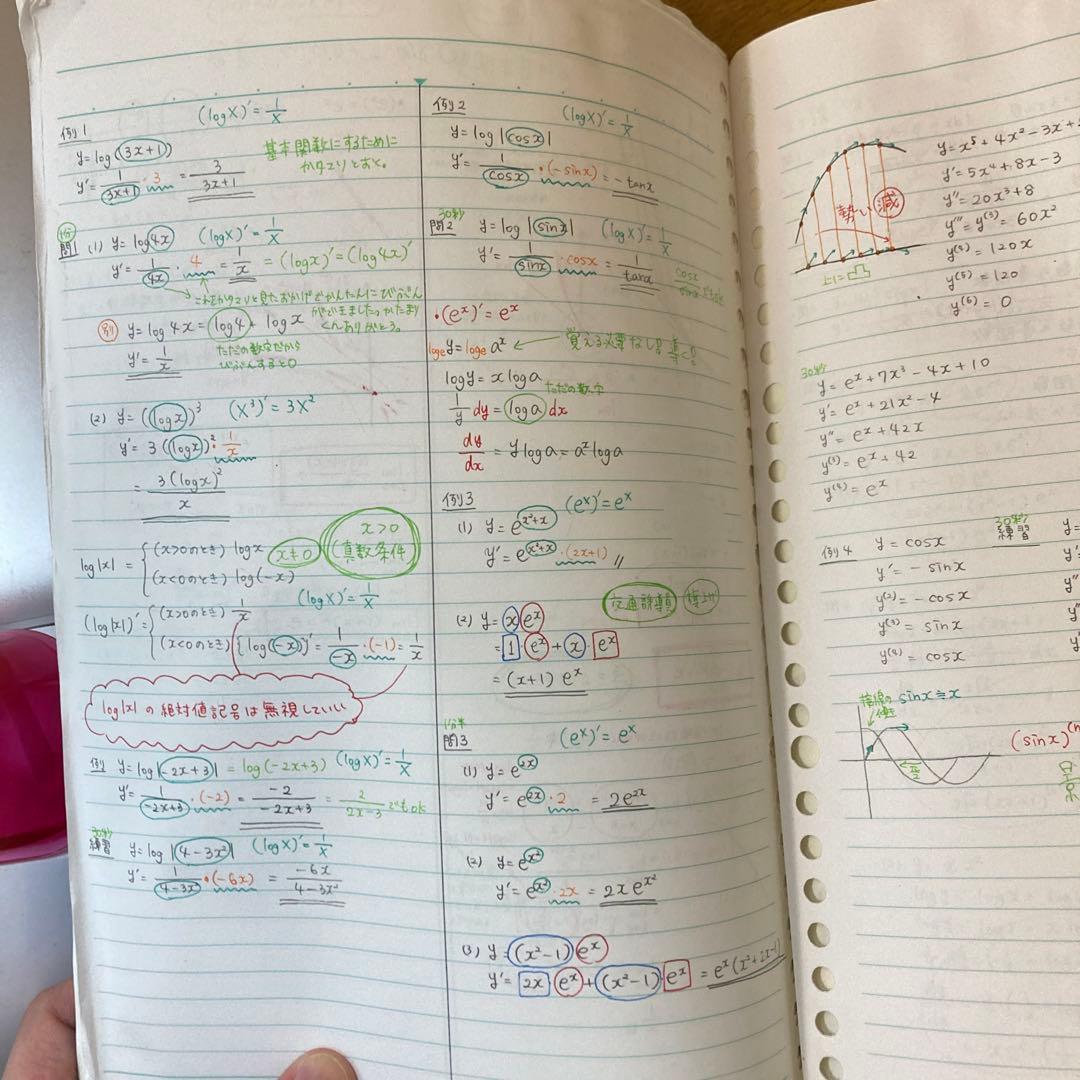 例1 (logX)'=1/X
y=log(3x+1)
y'=1/(3x+1)・3=3/(3x+1)
基本関数にするために
かタマリとおく。
1分
問1 (1) y=log4x (logX)'=1/X
y'=1/4x・4=1/x=(logx)'=(log4x)'
これをかタマリと見たおかげでかんたんにびぶん
ができました。かたまり
くんありがとう。
別 y=log4x=log4+logx
y'=1/x
ただの数字だから
びぶんすると0
(2) y=((logx))³ (X³)'=3X²
y'=3((logx))²・1/x
=3(logx)²/x
x>0
真数条件
log|x|={(x>0のとき) logx x≠0
(x<0のとき) log(-x)
(logX)'=1/X
(log|x|)'={(x>0のとき) 1/x
(x<0のとき) {log(-x)}'=1/-x・(-1)=1/x
log|x|の絶対値記号は無視していい
例 y=log|-2x+3|=log(-2x+3) (logX)'=1/X
y'=1/(-2x+3)・(-2)=-2/(-2x+3)=2/(2x-3)でもok
30秒
練習 y=log|4-3x²| (logX)'=1/X
y'=1/(4-3x²)・(-6x)=-6x/(4-3x²)
例2 (logX)'=1/X
y=log|cosx|
y'=1/cosx・(-sinx)=-tanx
30秒
問2 y=log|sinx| (logX)'=1/X
y'=1/sinx・cosx=1/tanx cosx/sinxでもok
・(eˣ)'=eˣ
logey=logeaˣ ← 覚える必要なし!
logy=xloga
ただの数字
1/y dy=loga dx
dy/dx=yloga=aˣloga
例3 (eˣ)'=eˣ
(1) y=e^(x²+x)
y'=e^(x²+x)・(2x+1)//
交通誘導
(2) y=xeˣ
=1・eˣ+x・eˣ
=(x+1)eˣ
1分半
問3 (eˣ)'=eˣ
(1) y=e^(2x)
y'=e^(2x)・2=2e^(2x)
(2) y=e^(x²)
y'=e^(x²)・2x=2xe^(x²)
(3) y=(x²-1)eˣ
y'=2x eˣ+(x²-1)eˣ=eˣ(x²+2x-1)
y=x⁵+4x²-3x+
y'=5x⁴+8x-3
y''=20x³+8
y'''=y⁽³⁾=60x²
y⁽⁴⁾=120x
y⁽⁵⁾=120
y⁽⁶⁾=0
勢い 減
30秒
y=eˣ+7x³-4x+10
y'=eˣ+21x²-4
y''=eˣ+42x
y⁽³⁾=eˣ+42
y⁽⁴⁾=eˣ
例4 y=cosx
y'=-sinx
y⁽²⁾=-cosx
y⁽³⁾=sinx
y⁽⁴⁾=cosx
30秒
練習
接線の
sinx≒x
π/2
(sinx)⁽ⁿ